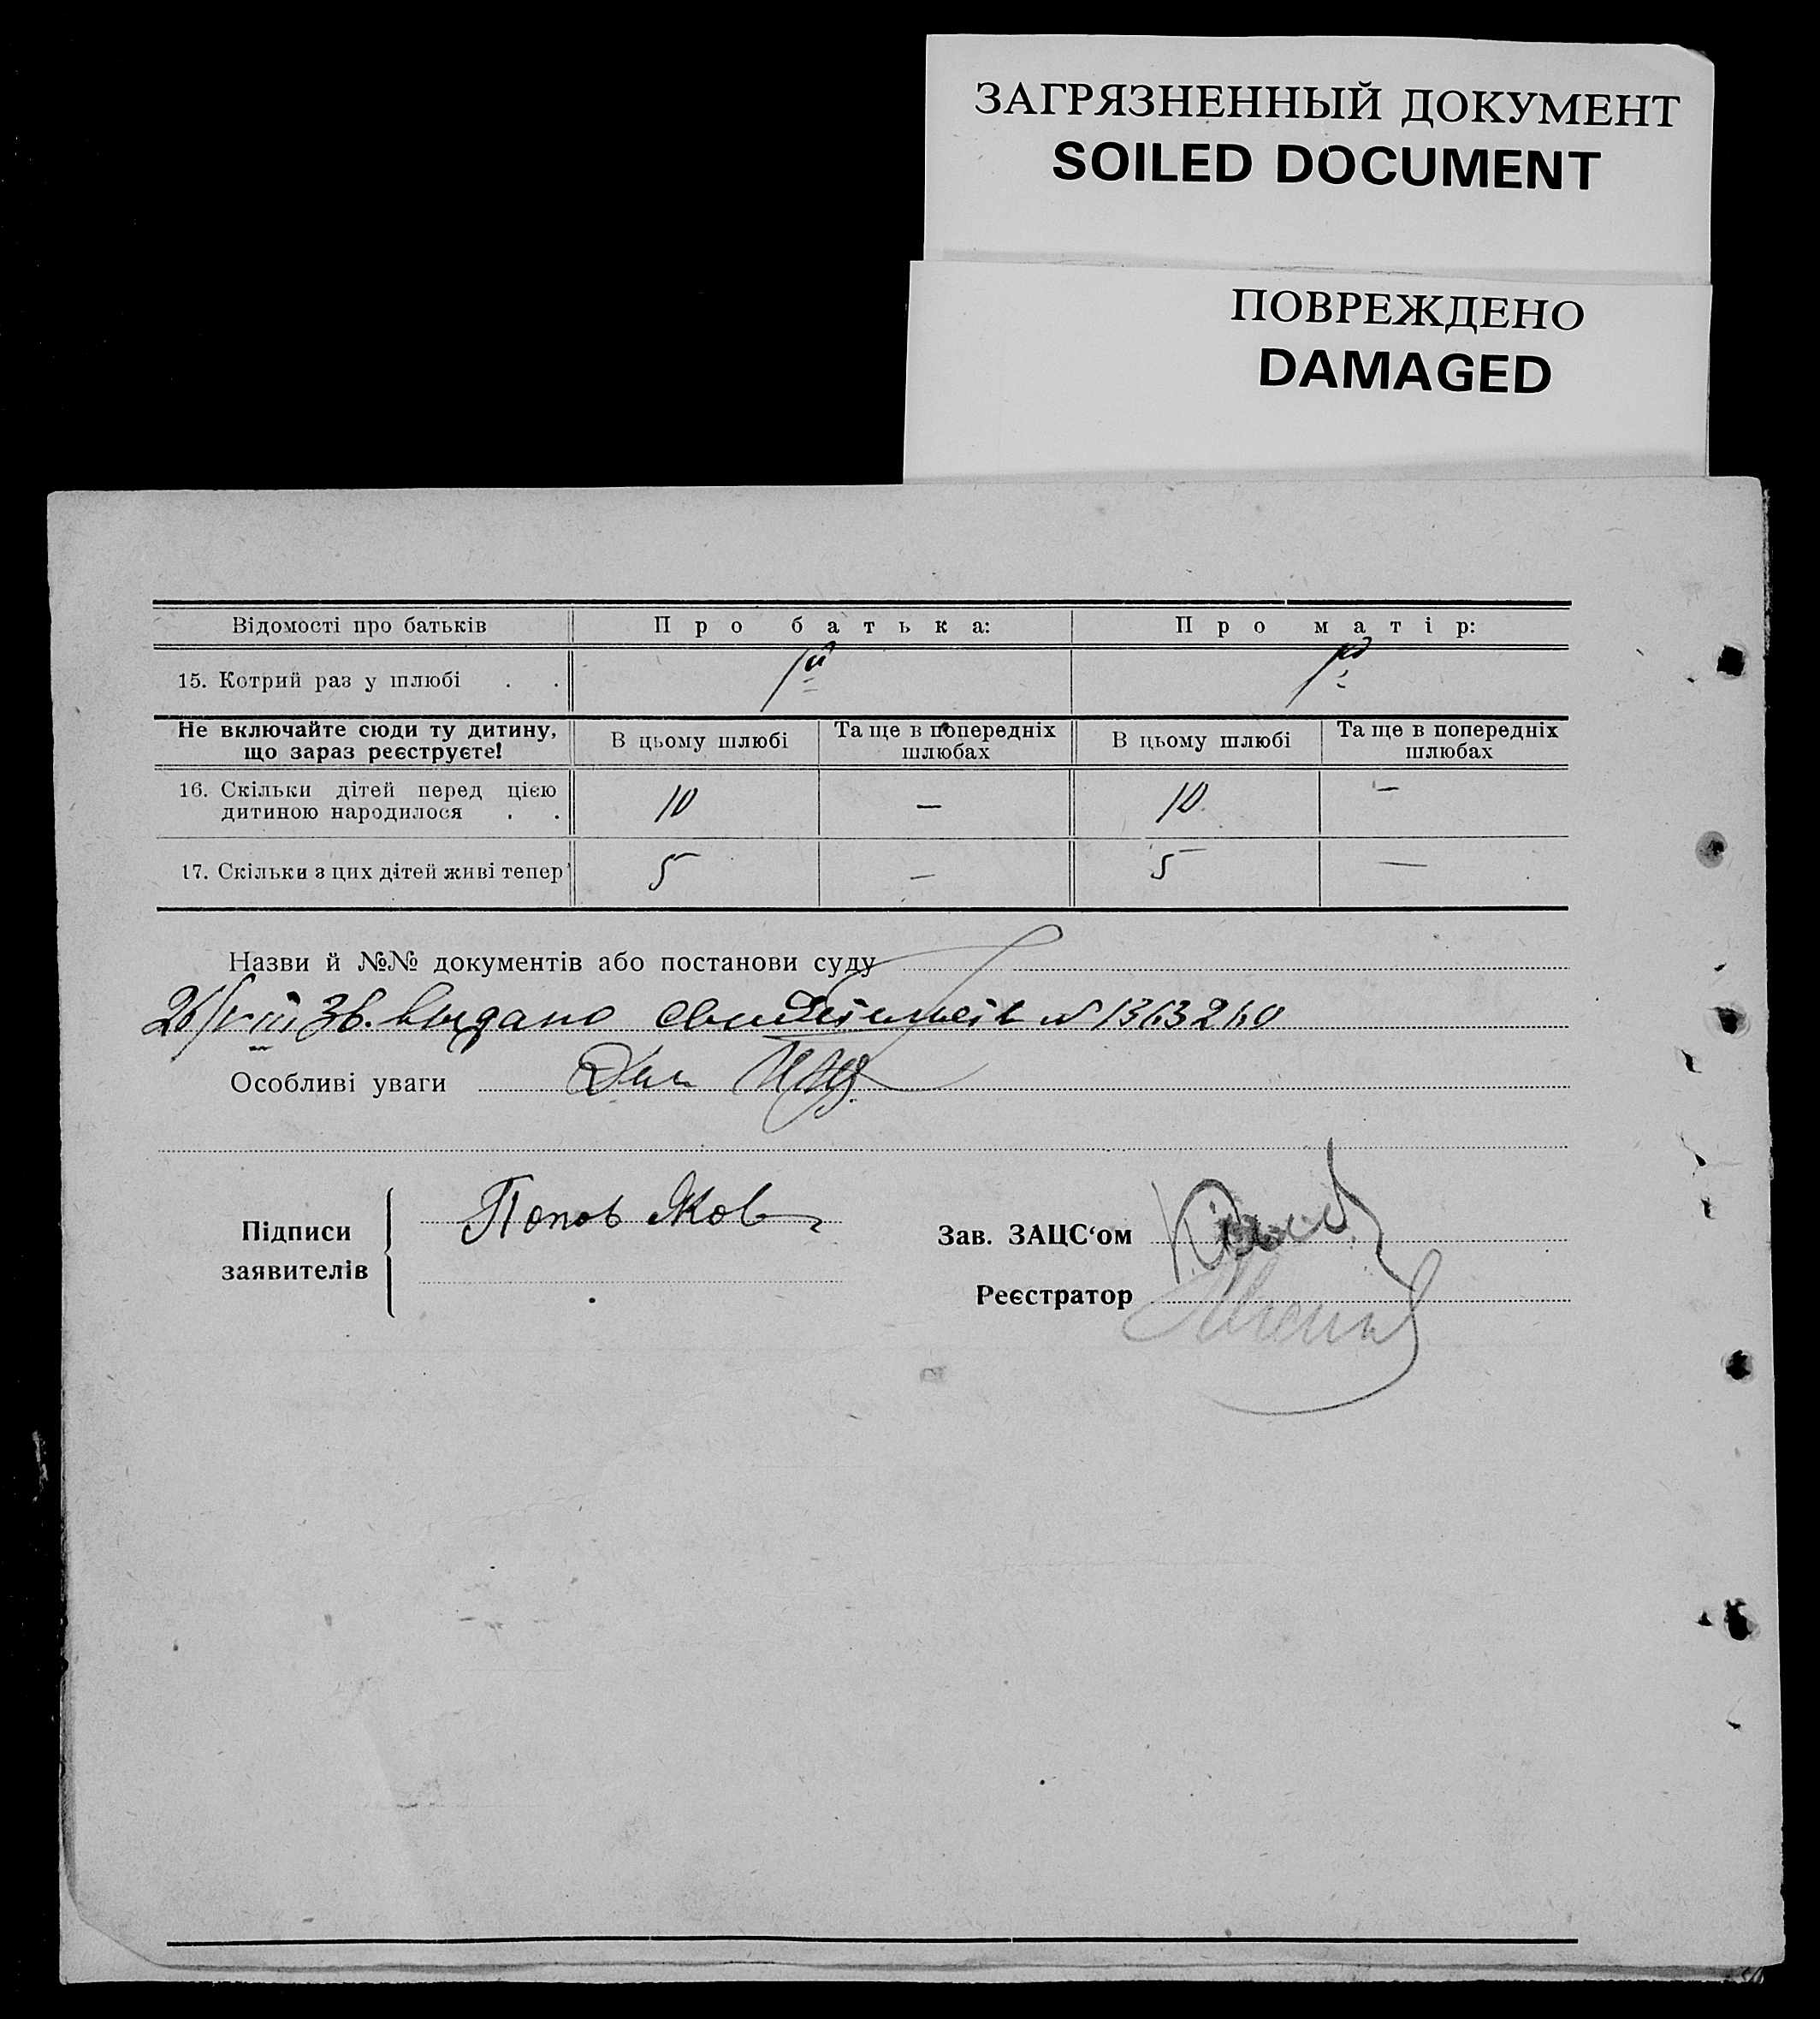 ЗАГРЯЗНЕННЫЙ ДОКУМЕНТ
SOILED DOCUMENT
ПОВРЕЖДЕНО
DAMAGED
Відомості про батьків Про батька: Про матір:
15. Котрий раз у шлюбі . .
Не включайте сюди ту дитину, що зараз реєструєте! В цьому шлюбі Та ще в попередніх шлюбах В цьому шлюбі Та ще в попередніх шлюбах
16. Скільки дітей перед цією
дитиною народилося . . 10 — 10 —
17. Скільки з цих дітей живі тепер 5 — 5 —
Назви й №№ документів або постанови суду
выдано №1363260
Особливі уваги
Підписи
заявителів
Попов Яков
Зав. ЗАЦС‘ом
Реєстратор